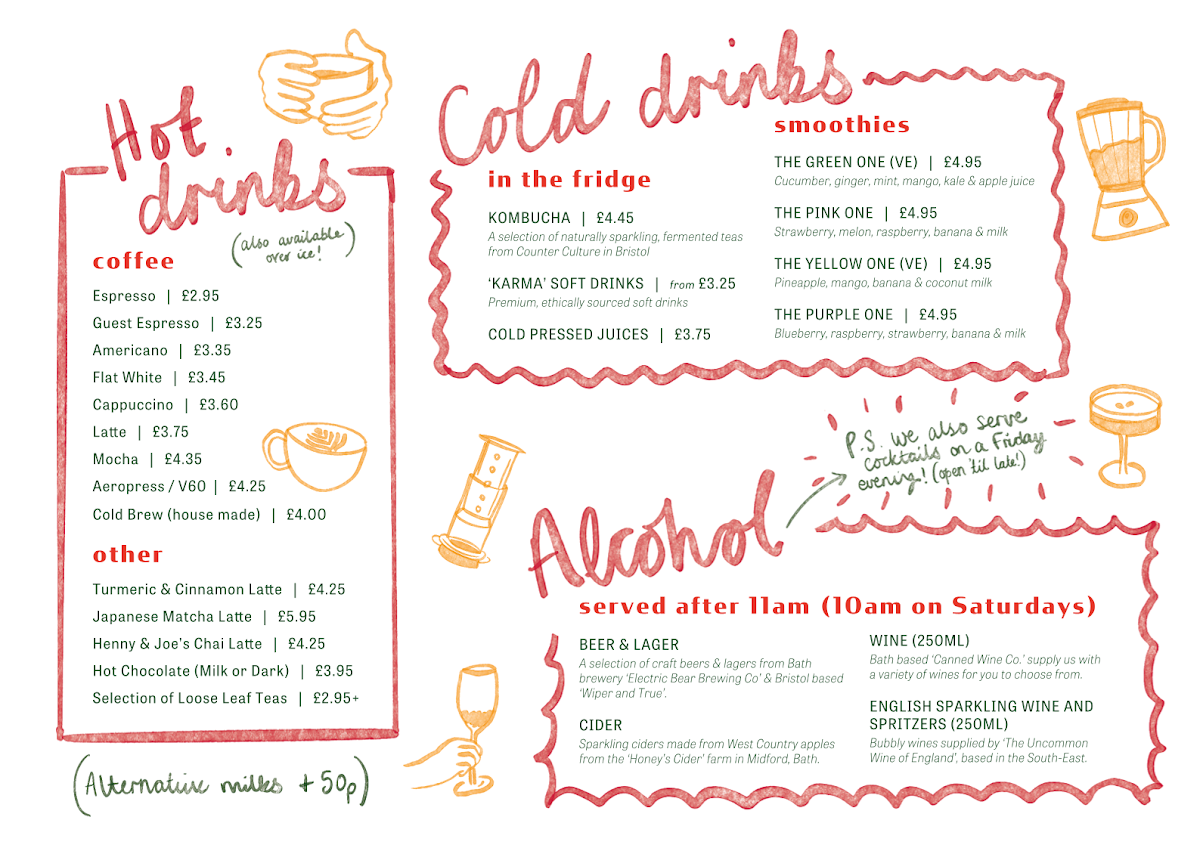 Hot
drinks
(also available
over ice!)
coffee
Espresso | £2.95
Guest Espresso | £3.25
Americano | £3.35
Flat White | £3.45
Cappuccino | £3.60
Latte | £3.75
Mocha | £4.35
Aeropress / V60 | £4.25
Cold Brew (house made) | £4.00
other
Turmeric & Cinnamon Latte | £4.25
Japanese Matcha Latte | £5.95
Henny & Joe's Chai Latte | £4.25
Hot Chocolate (Milk or Dark) | £3.95
Selection of Loose Leaf Teas | £2.95+
(Alternative milks + 50p)
Cold drinks
in the fridge
KOMBUCHA | £4.45
A selection of naturally sparkling, fermented teas
from Counter Culture in Bristol
'KARMA' SOFT DRINKS | from £3.25
Premium, ethically sourced soft drinks
COLD PRESSED JUICES | £3.75
smoothies
THE GREEN ONE (VE) | £4.95
Cucumber, ginger, mint, mango, kale & apple juice
THE PINK ONE | £4.95
Strawberry, melon, raspberry, banana & milk
THE YELLOW ONE (VE) | £4.95
Pineapple, mango, banana & coconut milk
THE PURPLE ONE | £4.95
Blueberry, raspberry, strawberry, banana & milk
P.S. we also serve
cocktails on a Friday
evening! (open 'til late!)
Alcohol
served after 11am (10am on Saturdays)
BEER & LAGER
A selection of craft beers & lagers from Bath
brewery 'Electric Bear Brewing Co' & Bristol based
'Wiper and True'.
CIDER
Sparkling ciders made from West Country apples
from the 'Honey's Cider' farm in Midford, Bath.
WINE (250ML)
Bath based 'Canned Wine Co.' supply us with
a variety of wines for you to choose from.
ENGLISH SPARKLING WINE AND
SPRITZERS (250ML)
Bubbly wines supplied by 'The Uncommon
Wine of England', based in the South-East.